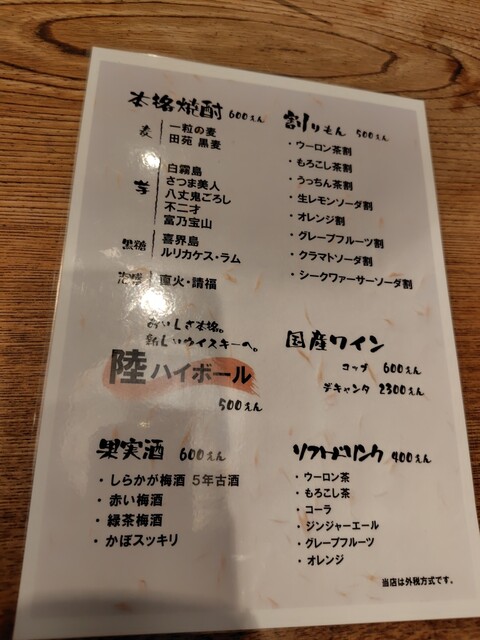 本格焼酎 600えん
麦 一粒の麦
田苑 黒麦
芋 白霧島
さつま美人
八丈鬼ごろし
不二才
富乃宝山
黒糖 喜界島
ルリカケス・ラム
泡盛 直火・請福
おいしさ本格。
新しいウイスキーへ。
陸 ハイボール
500えん
果実酒 600えん
・しらかが梅酒 5年古酒
・赤い梅酒
・緑茶梅酒
・かぼスッキリ
割りもん 500えん
・ウーロン茶割
・もろこし茶割
・うっちん茶割
・生レモンソーダ割
・オレンジ割
・グレープフルーツ割
・クラマトソーダ割
・シークヮーサーソーダ割
国産ワイン
コップ 600えん
デキャンタ 2300えん
ソフトドリンク 400えん
・ウーロン茶
・もろこし茶
・コーラ
・ジンジャーエール
・グレープフルーツ
・オレンジ
当店は外税方式です。